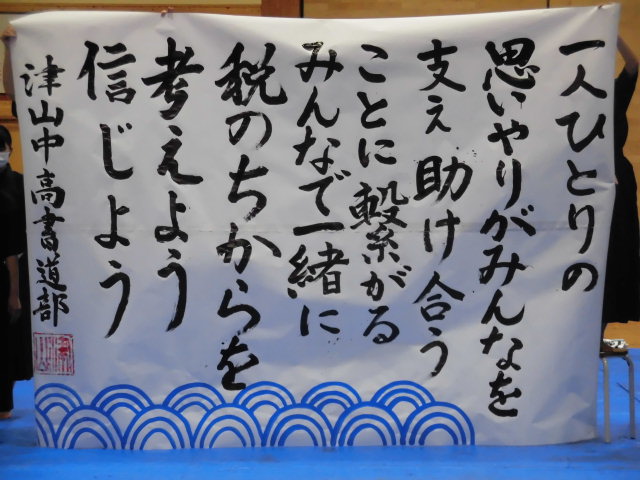 一人ひとりの
思いやりがみんなを
支え助け合う
ことに繋がる
みんなで一緒に
税のちからを
考えよう
信じよう
津山中高書道部